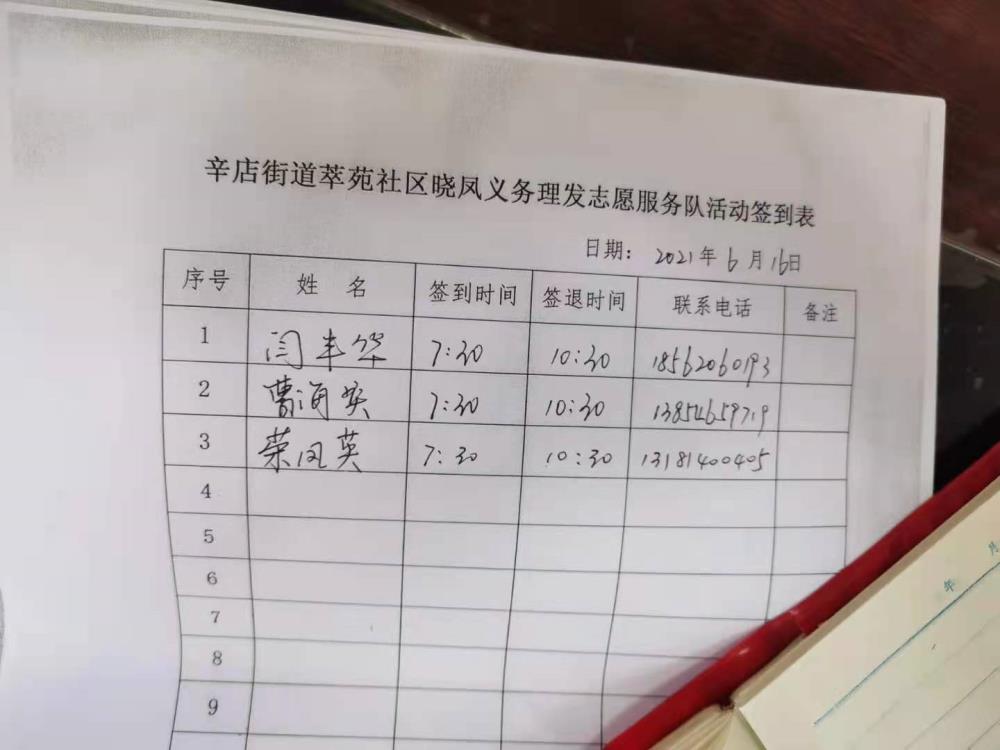 辛店街道萃苑社区晓凤义务理发志愿服务队活动签到表
日期： 2021年6月16日
序号 姓 名 签到时间 签退时间 联系电话 备注
1 闫丰华 7:30 10:30 18562060193
2 曹海英 7:30 10:30 13854659719
3 荣凤英 7:30 10:30 13181400405
4
5
6
7
8
9
年 月